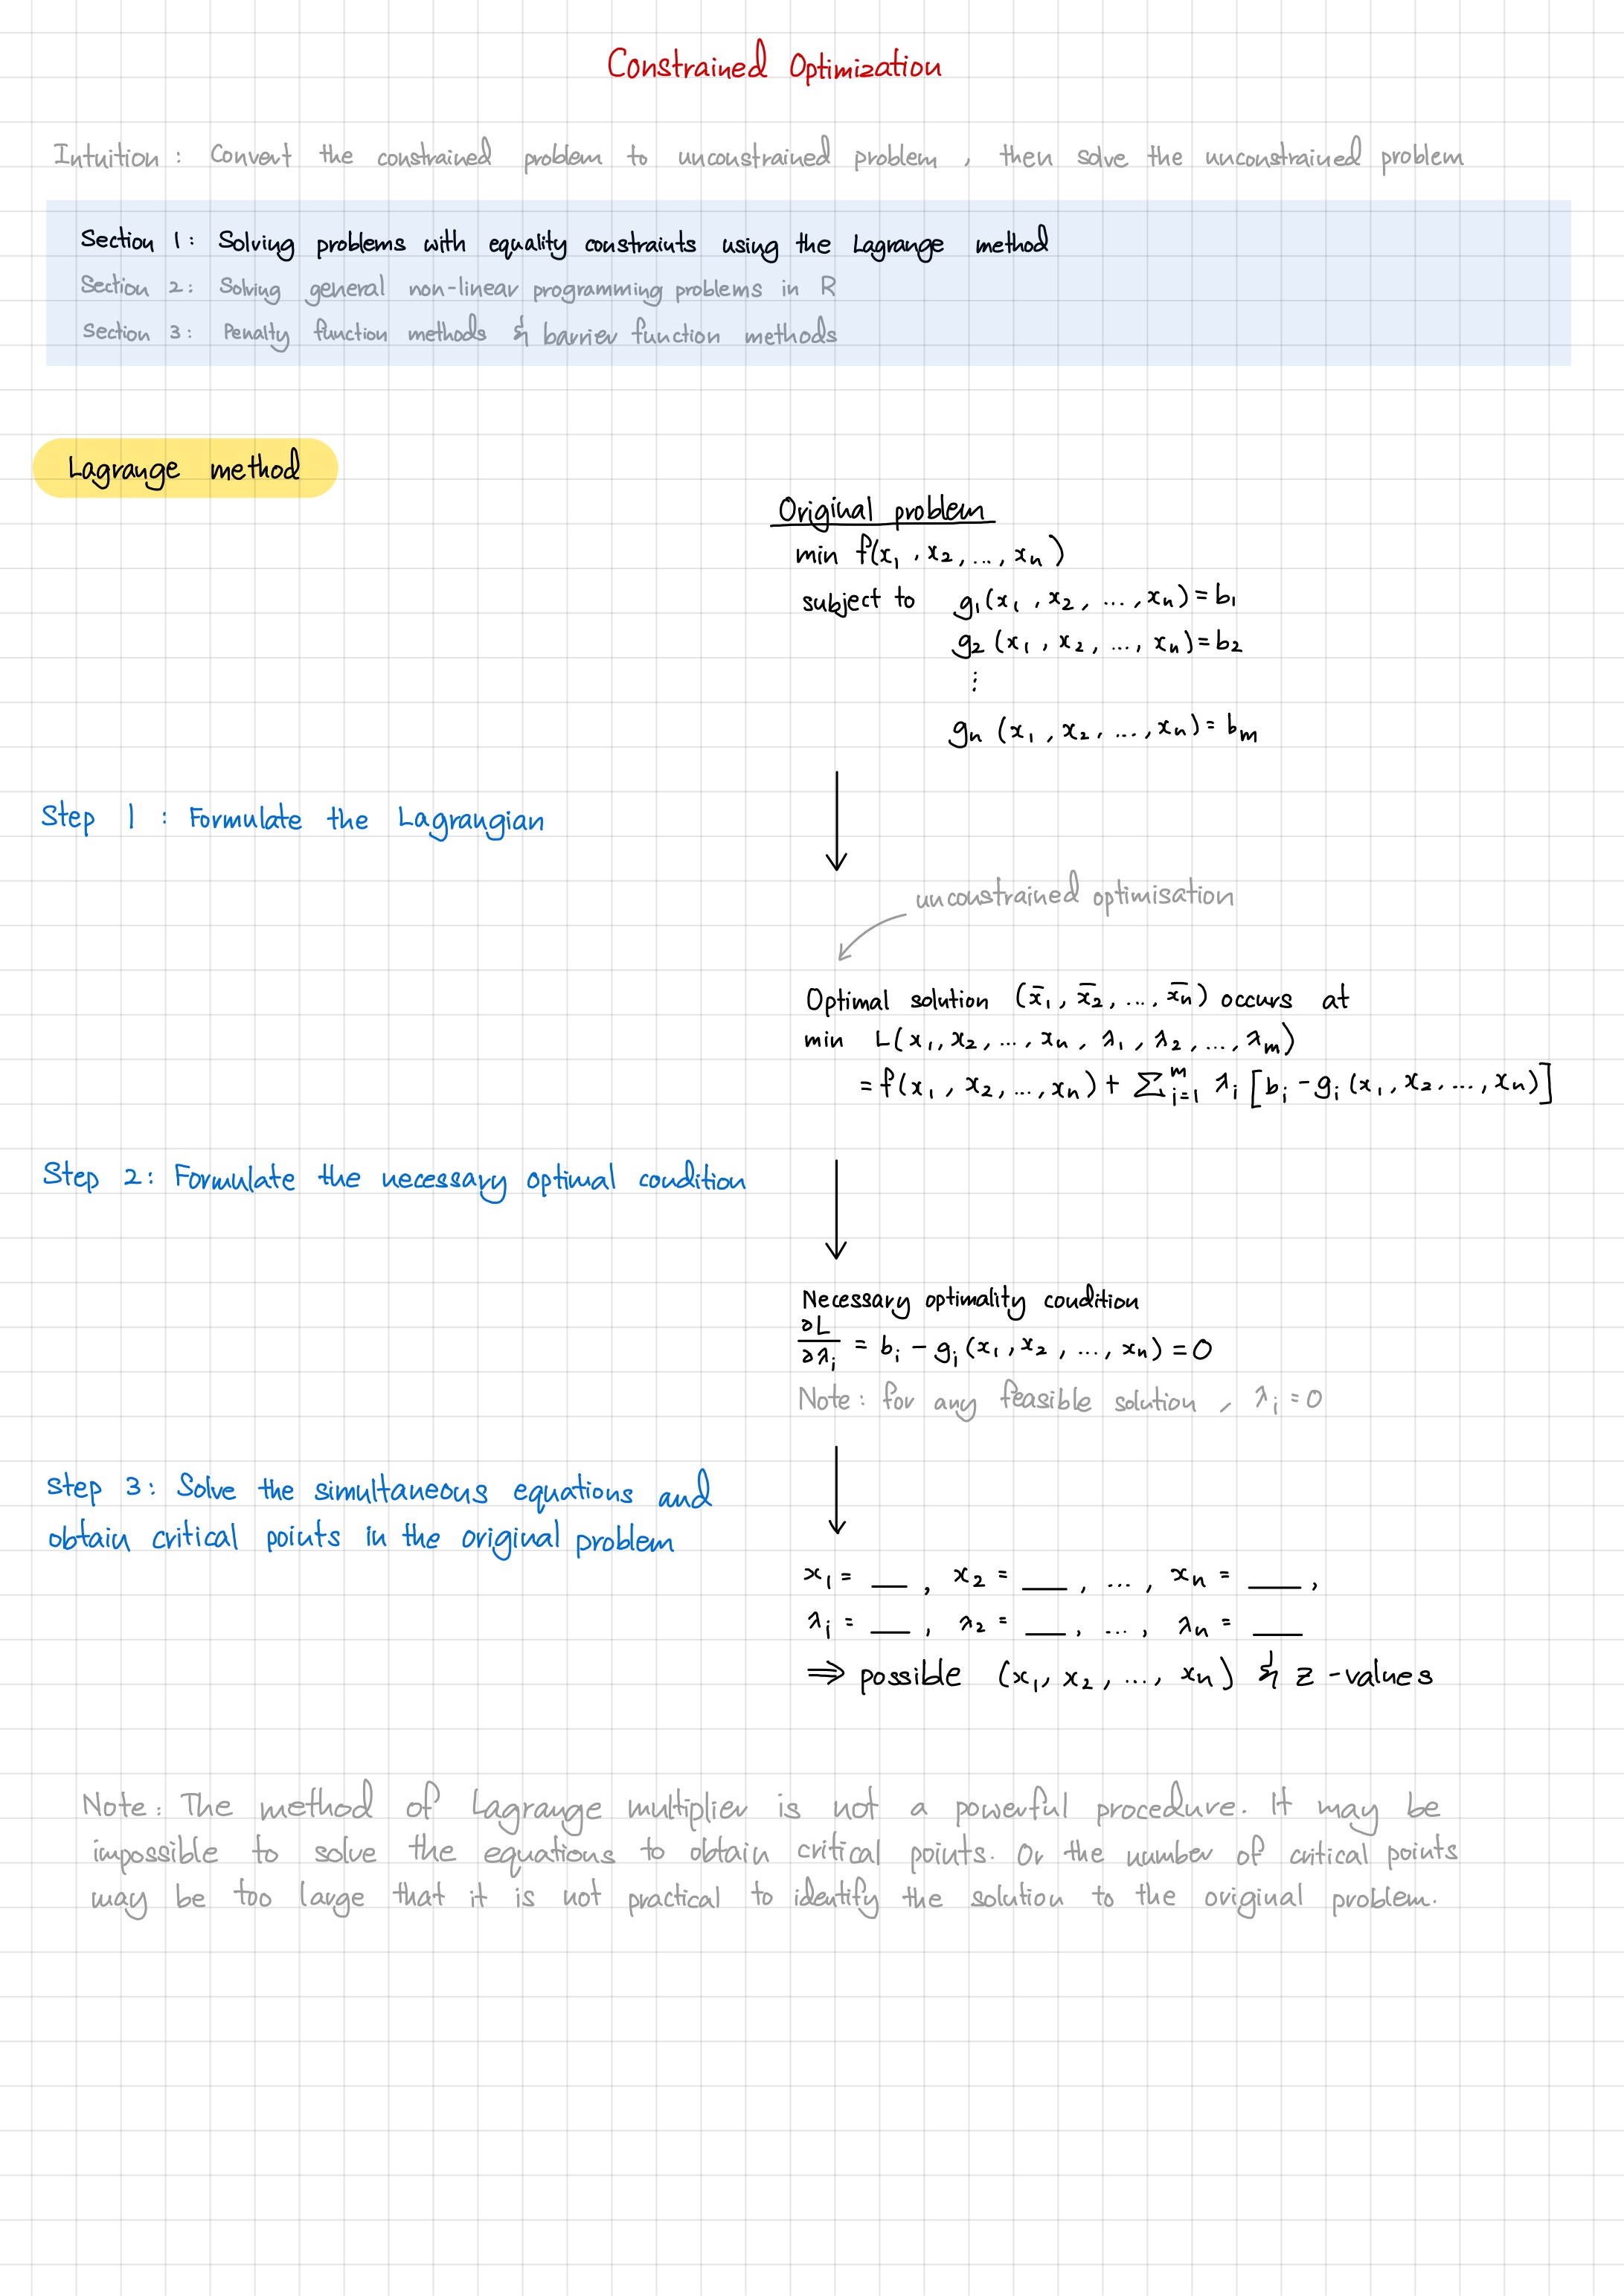 Constrained Optimization
Intuition : Convert the constrained problem to unconstrained problem , then solve the unconstrained problem
Section 1: Solving problems with equality constraints using the Lagrange method
Section 2: Solving general non-linear programming problems in R
Section 3: Penalty function methods & barrier function methods
Lagrange method
Original problem
min f(x₁, x₂, ..., xₙ)
subject to g₁(x₁, x₂, ..., xₙ) = b₁
g₂(x₁, x₂, ..., xₙ) = b₂
⋮
gₙ(x₁, x₂, ..., xₙ) = bₘ
Step 1 : Formulate the Lagrangian
unconstrained optimisation
Optimal solution (x̄₁, x̄₂, ..., x̄ₙ) occurs at
min L(x₁, x₂, ..., xₙ, λ₁, λ₂, ..., λₘ)
= f(x₁, x₂, ..., xₙ) + ∑ᵢ₌₁ᵐ λᵢ [bᵢ - gᵢ(x₁, x₂, ..., xₙ)]
Step 2: Formulate the necessary optimal condition
Necessary optimality condition
∂L/∂λᵢ = bᵢ - gᵢ(x₁, x₂, ..., xₙ) = 0
Note : for any feasible solution , λᵢ = 0
Step 3: Solve the simultaneous equations and
obtain critical points in the original problem
x₁ = __ , x₂ = __ , ... , xₙ = __ ,
λᵢ = __ , λ₂ = __ , ... , λₙ = __
⇒ possible (x₁, x₂, ..., xₙ) & z -values
Note: The method of Lagrange multiplier is not a powerful procedure. It may be
impossible to solve the equations to obtain critical points. Or the number of critical points
may be too large that it is not practical to identify the solution to the original problem.